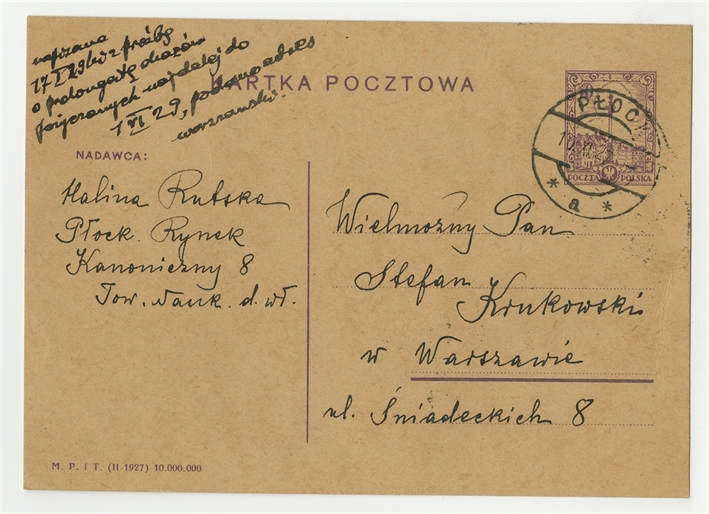 napisano
17 I 29 kw z prośbą
o prolongatę okazów
pożyczonych najdalej do
1 VI 29, podano adres
warszawski.
KARTKA POCZTOWA
PŁOCK
a
POCZTA POLSKA
NADAWCA:
Halina Rutska
Płock. Rynek
Kanoniczny 8
Tow. Nauk. d. wł.
Wielmożny Pan
Stefan
Krukowski
w Warszawie
ul. Śniadeckich 8
M. P. i T. (II-1927) 10.000.000